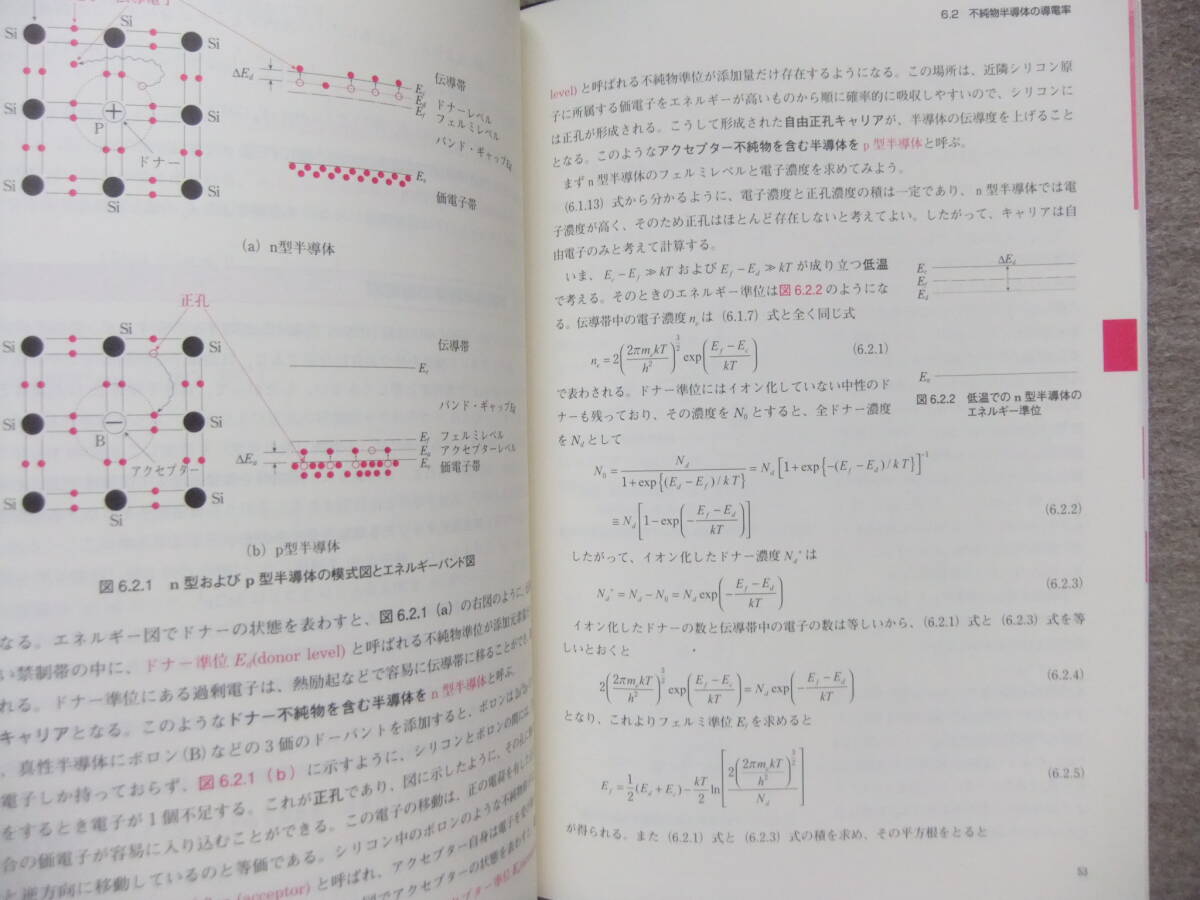 伝導電子
Si
Si
Si
ΔEd
伝導帯
Ec
Ed ドナーレベル
Ef フェルミレベル
バンド・ギャップEg
Si
P
Si
ドナー
Ev
価電子帯
Si
Si
Si
(a) n型半導体
正孔
Si
Si
Si
伝導帯
Ec
バンド・ギャップEg
Si
B
Si
アクセプター
Ef フェルミレベル
Ea アクセプターレベル
Ev 価電子帯
ΔEa
Si
Si
Si
(b) p型半導体
図 6.2.1 n 型および p 型半導体の模式図とエネルギーバンド図
なる。エネルギー図でドナーの状態を表わすと、図 6.2.1 (a) の右図のように、
い禁制帯の中に、ドナー準位 Ed(donor level) と呼ばれる不純物準位が添加元素
れる。ドナー準位にある過剰電子は、熱励起などで容易に伝導帯に移ることができ、
キャリアとなる。このようなドナー不純物を含む半導体を n 型半導体と呼ぶ。
、真性半導体にボロン(B)などの3価のドーパントを添加すると、ボロンは
電子しか持っておらず、図 6.2.1 (b) に示すように、シリコンとボロンの間には、
をするとき電子が1個不足する。これが正孔であり、図に示したように、その
合の価電子が容易に入り込むことができる。この電子の移動は、正の電荷を有した
と逆方向に移動しているのと等価である。シリコン中のボロンのような不純物
(acceptor) と呼ばれ、アクセプター自身は電子を
図でアクセプターの状態を表わす
セプター準位
6.2 不純物半導体の導電率
level) と呼ばれる不純物準位が添加量だけ存在するようになる。この場所は、近隣シリコン原
子に所属する価電子をエネルギーが高いものから順に確率的に吸収しやすいので、シリコンに
は正孔が形成される。こうして形成された自由正孔キャリアが、半導体の伝導度を上げること
となる。このようなアクセプター不純物を含む半導体を p 型半導体と呼ぶ。
まず n 型半導体のフェルミレベルと電子濃度を求めてみよう。
(6.1.13) 式から分かるように、電子濃度と正孔濃度の積は一定であり、n 型半導体では電
子濃度が高く、そのため正孔はほとんど存在しないと考えてよい。したがって、キャリアは自
由電子のみと考えて計算する。
いま、Ec－Ef ≫ kT および Ef－Ed ≫ kT が成り立つ低温
で考える。そのときのエネルギー準位は図6.2.2 のようにな
る。伝導帯中の電子濃度 ne は (6.1.7) 式と全く同じ式
ne = 2(2πmekT/h²)^(3/2) exp((Ef－Ec)/kT) (6.2.1)
で表わされる。ドナー準位にはイオン化していない中性のド
ナーも残っており、その濃度を N0 とすると、全ドナー濃度
を Nd として
N0 = Nd/(1+exp{(Ed－Ef)/kT}) = Nd[1+exp{－(Ef－Ed)/kT}]^-1
≡ Nd[1－exp(－(Ef－Ed)/kT)] (6.2.2)
したがって、イオン化したドナー濃度 Nd⁺ は
Nd⁺ = Nd－N0 = Nd exp(－(Ef－Ed)/kT) (6.2.3)
イオン化したドナーの数と伝導帯中の電子の数は等しいから、(6.2.1) 式と (6.2.3) 式を等
しいとおくと
2(2πmekT/h²)^(3/2) exp((Ef－Ec)/kT) = Nd exp(－(Ef－Ed)/kT) (6.2.4)
となり、これよりフェルミ準位 Ef を求めると
Ef = 1/2(Ed+Ec)－kT/2 ln[2(2πmekT/h²)^(3/2)/Nd] (6.2.5)
が得られる。また (6.2.1) 式と (6.2.3) 式の積を求め、その平方根をとると
ΔEd
Ec
Ef
Ed
Ev
図 6.2.2 低温での n 型半導体の
エネルギー準位
53